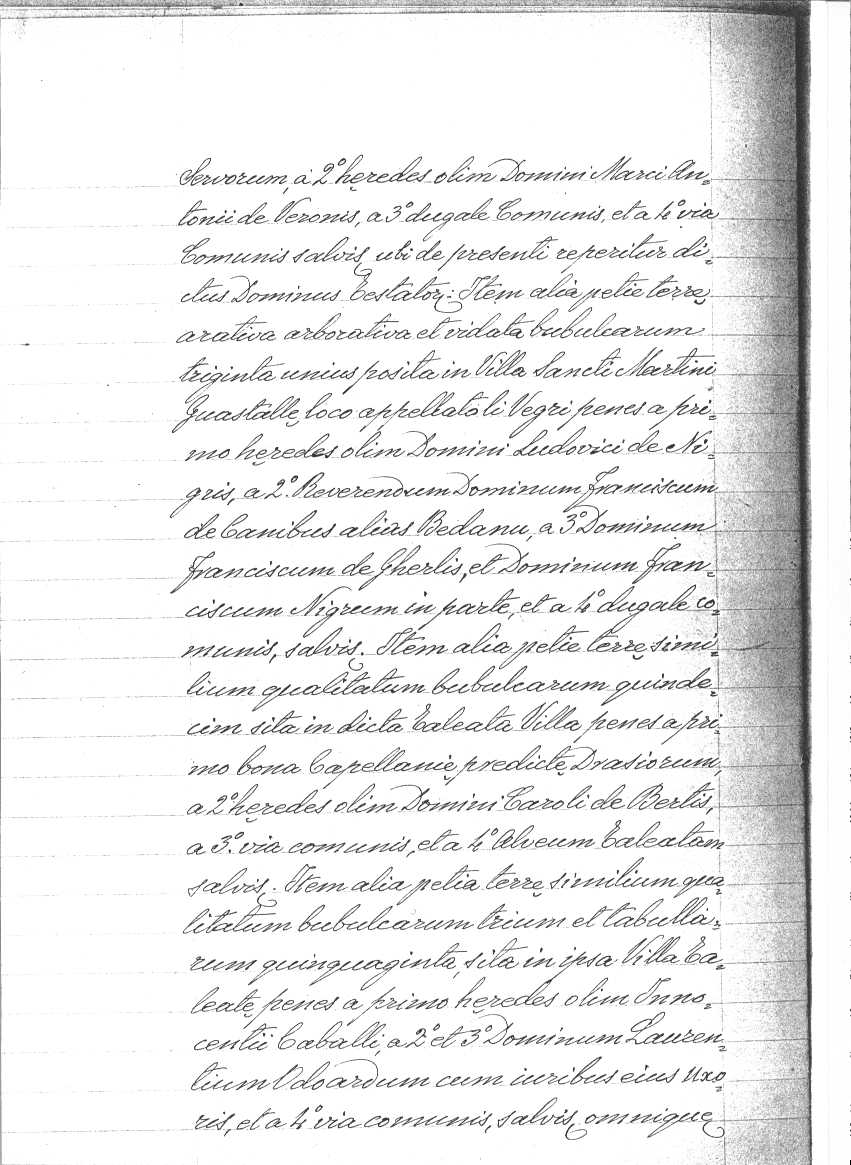 Servorum, a 2º hęredes olim Domini Marci An=
tonii de Veronis, a 3º dugale Comunis, et a 4º via
Comunis salvis, ubi de presenti reperitur di=
ctus Dominus Testator: Item alia petie terrę
arativa arborativa et vidata bubulcarum
triginta unius posita in Villa Sancti Martini
Guastallę, loco appellato li Vegri penes a pri=
mo hęredes olim Domini Ludovici de Ni=
gris, a 2º. Reverendum Dominum Franciscum
de Canibus alias Bedanu, a 3º Dominum
Franciscum de Gherlis, et Dominum Fran=
ciscum Nigrum in parte, et a 4º dugale co=
munis, salvis. Item alia petie terrę simi=
lium qualitatum bubulcarum quinde=
cim sita in dicta Taleata Villa penes a pri=
mo bona Capellanię predictę Drasiorum,
a 2º hęredes olim Domini Caroli de Bertis,
a 3º. via comunis, et a 4º Alveum Taleatam
salvis. Item alia petia terrę similium qua=
litatum bubulcarum trium et tabulla=
rum quinquaginta, sita in ipsa Villa Ta=
leatę, penes a primo hęredes olim Inno=
centii Caballi, a 2º et 3º Dominum Lauren=
tium Odoardum cum iuribus eius Uxo=
ris, et a 4º via comunis, salvis, omnique